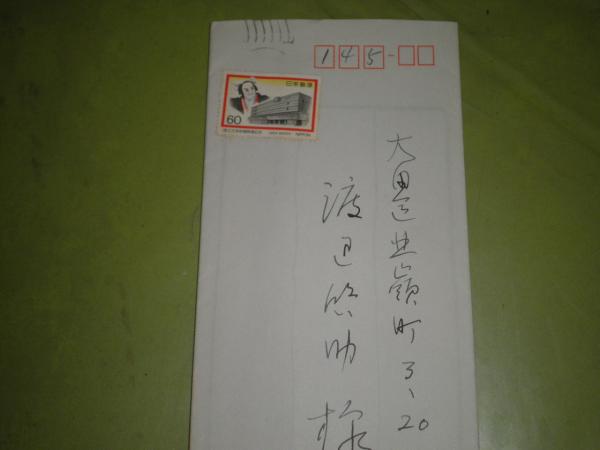 145-
日本郵便
60
NIPPON
大田区北嶺町3、20
渡辺悠助様